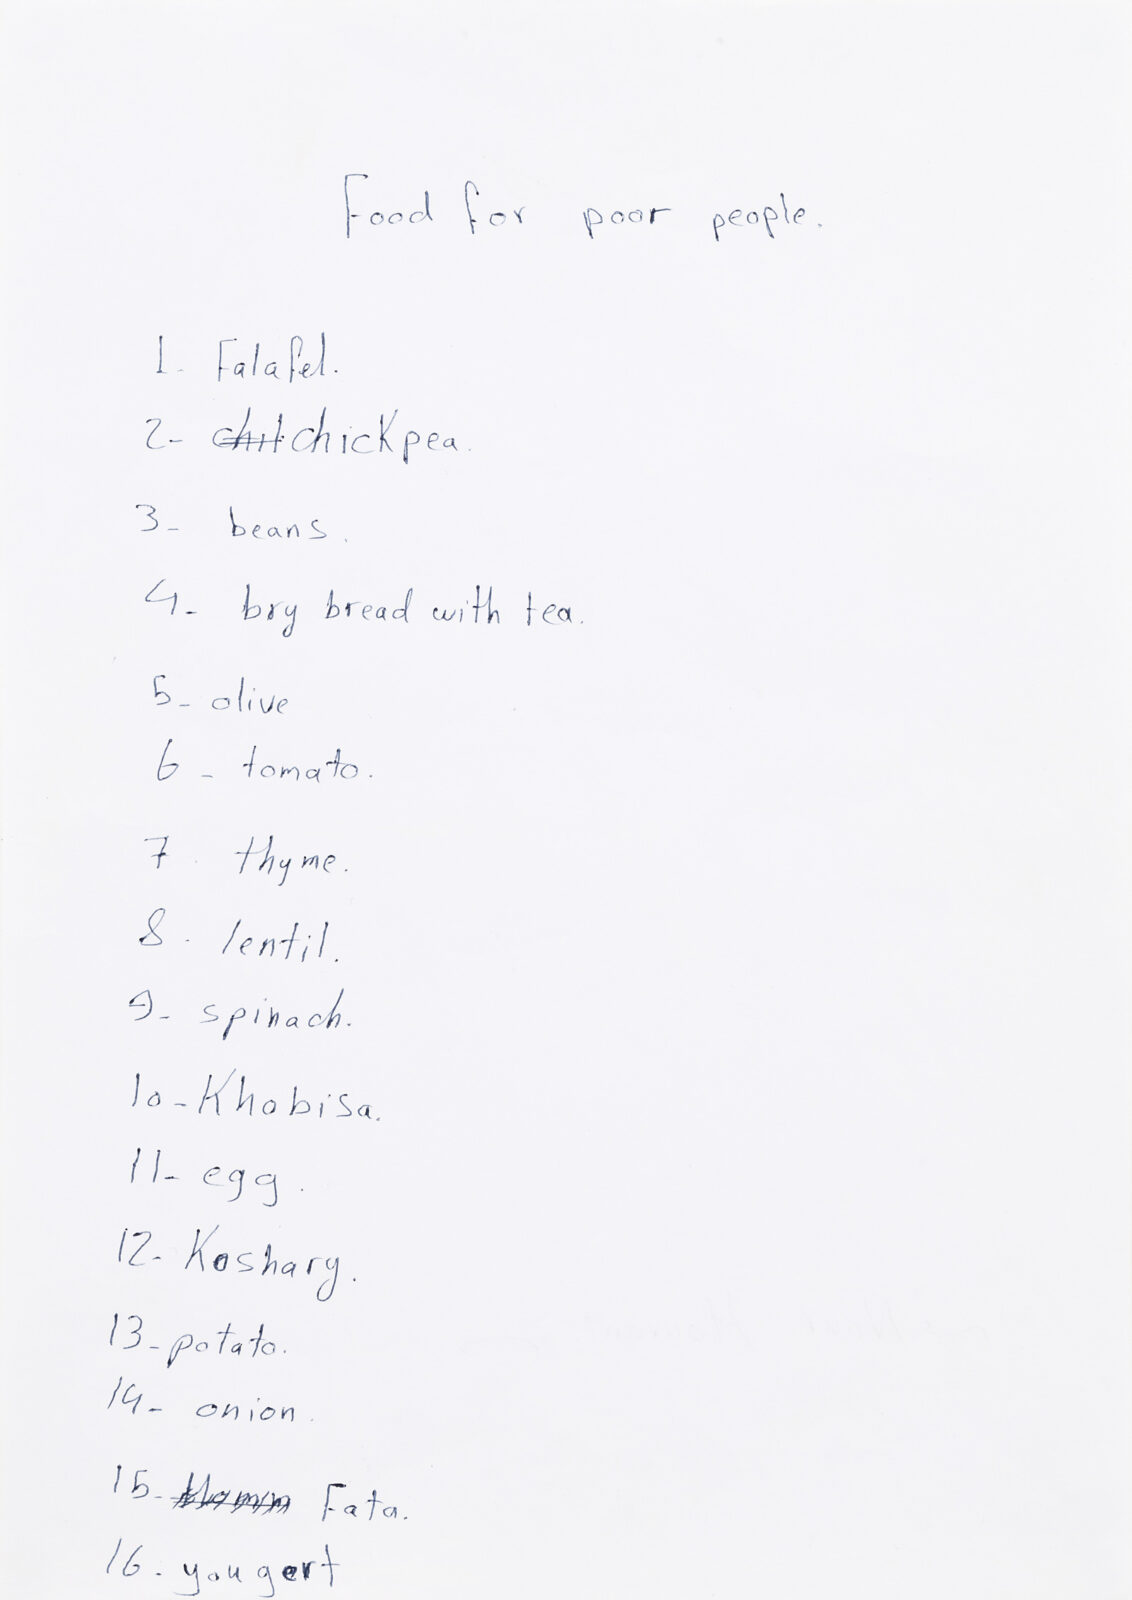 Food for poor people.
1- Falafel.
2- chickpea.
3- beans.
4- bry bread with tea.
5- olive
6- tomato.
7. thyme.
8. lentil.
9- spinach.
10- Khobisa.
11- egg.
12- Koshary.
13- potato.
14- onion.
15- Fata.
16- yougert